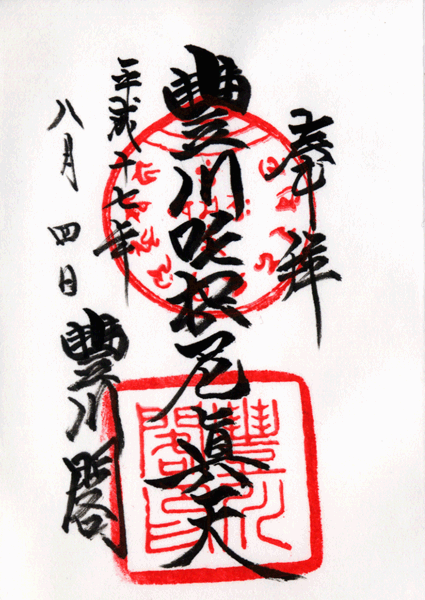 奉拜
豊川吒枳尼眞天
平成十七年
八月四日
豊川閣
豊川閣印